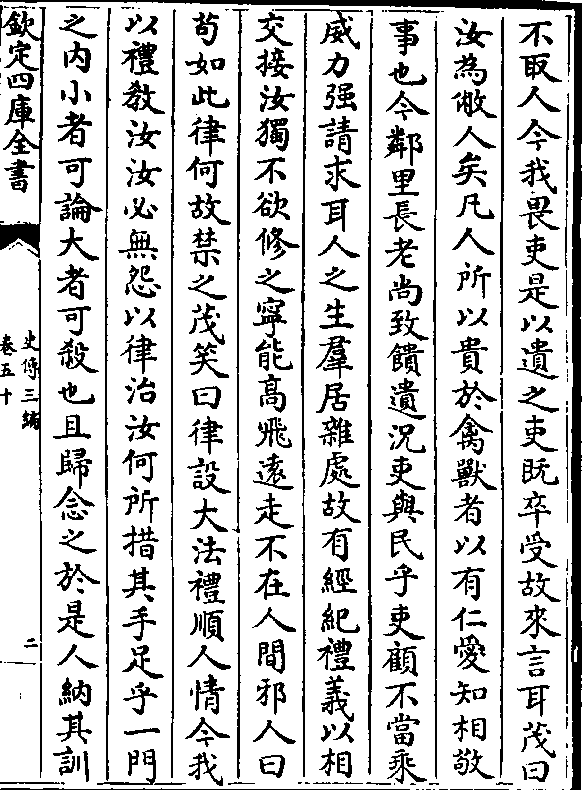 不取人今我畏吏是以遺之吏既卒受故來言耳茂曰
汝為敝人矣凡人所以貴於禽獸者以有仁愛知相敬
事也今鄰里長老尚致饋遺況吏與民乎吏顧不當乘
威力强請求耳人之生羣居雜處故有經紀禮義以相
交接汝獨不欲修之寧能高飛遠走不在人間邪人曰
茍如此律何故禁之茂笑曰律設大法禮順人情今我
以禮教汝汝必無怨以律治汝何所措其手足乎一門
之内小者可論大者可殺也且歸念之於是人納其訓
欽定四庫全書
史傳三編
卷五十
二